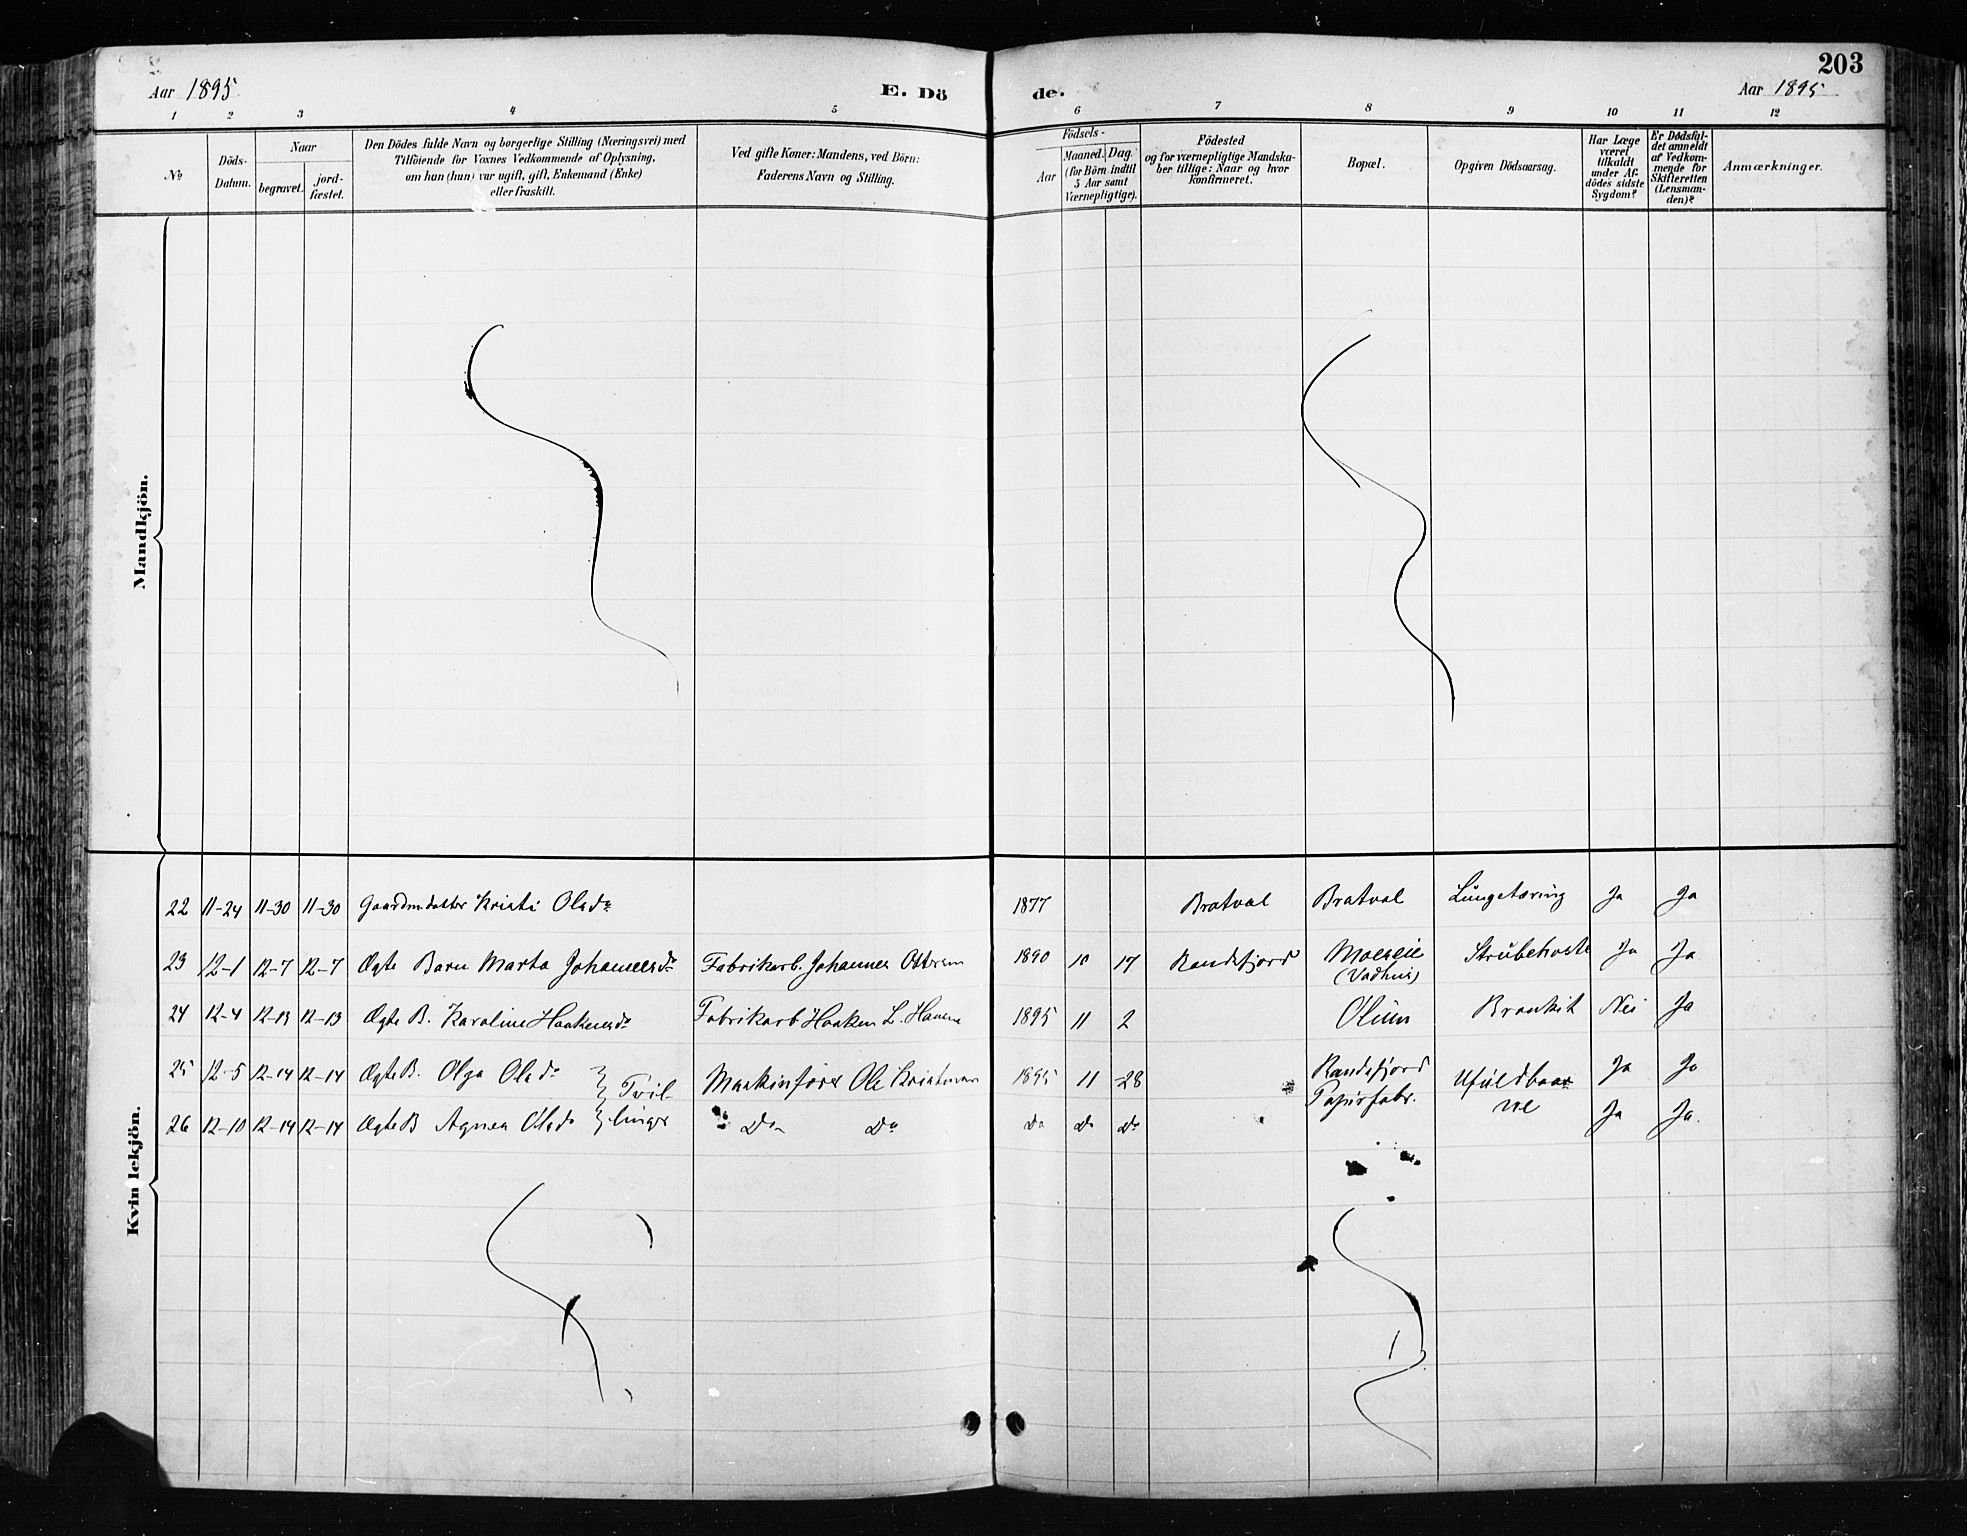 203
Aar 1895
E. Dö
de.
Aar 1895
1 2 3 4 5 6 7 8 9 10 11 12
No
Döds-
Datum.
Naar
begravet.
jord-
fæstet.
Den Dödes fulde Navn og borgerlige Stilling (Næringsvei) med
Tilföiende for Voxnes Vedkommende af Oplysning,
om han (hun) var ugift, gift, Enkemand (Enke)
eller fraskilt.
Ved gifte Koner: Mandens, ved Börn:
Faderens Navn og Stilling.
Födsels-
Aar
Maaned. Dag.
(for Börn indtil
5 Aar samt
Værnepligtige).
Födested
og for værnepligtige Mandska-
ber tillige: Naar og hvor
konfirmeret.
Bopæl.
Opgiven Dödsaarsag.
Har Læge
været
tilkaldt
under Af-
dödes sidste
Sygdom?
Er Dödsfal-
det anmeldt
af Vedkom-
mende for
Skifteretten
(Lensman-
den)?
Anmærkninger.
Mandkjön.
Kvin lekjön.
22 11-24 11-30 11-30 Gaardm.datter Kristi Olsdr 1877 Bratval Bratval Lungetæring Ja Ja
23 12-1 12-7 12-7 Ægte Barn Marta Johannesdr Fabrikarb. Johannes Ottersen 1890 10 17 Randsfjord Moeseie Strubehoste Ja Ja
(Vadhus)
24 12-4 12-13 12-13 Ægte B. Karoline Haakensdr Fabrikarb Haaken L. Hansen 1895 11 2 Olum Bronkit Nei Ja
25 12-5 12-14 12-14 Ægte B. Olga Olsdr Tvil- Maskinfører Ole Kristensen 1895 11 28 Randsfjord Ufuldbaar Ja Ja
Papirfabr. ne
26 12-10 12-14 12-14 Ægte B Agnes Olsdr linger Do Do Do Do Do Ja Ja.